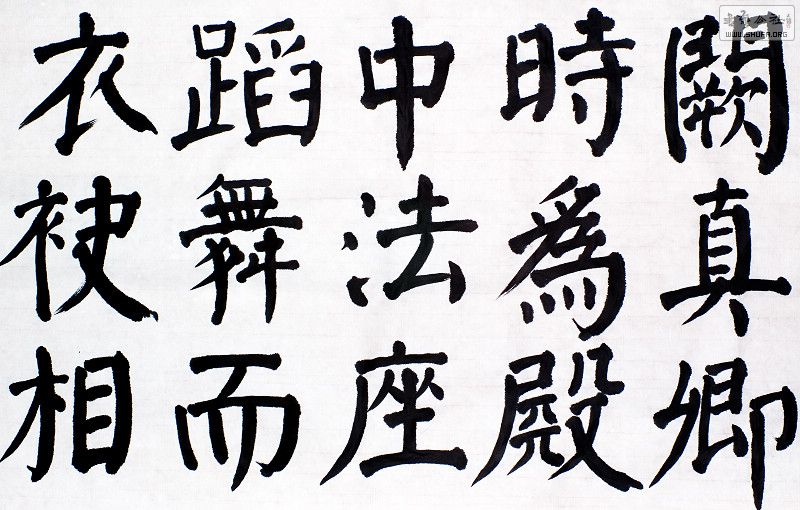 闕真卿
時爲殿
中法座
蹈舞而
衣袂相
WWW.SHUFA.ORG